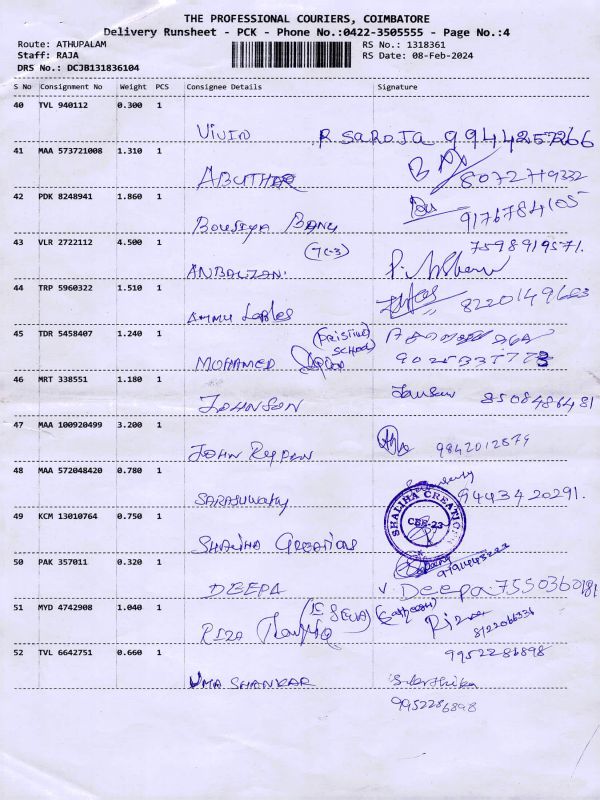 THE PROFESSIONAL COURIERS, COIMBATORE
Delivery Runsheet - PCK - Phone No.:0422-3505555 - Page No.:4
Route: ATHUPALAM RS No.: 1318361
Staff: RAJA RS Date: 08-Feb-2024
DRS No.: DCJB131836104
S No Consignment No Weight PCS Consignee Details Signature
40 TVL 940112 0.300 1
VIVIN R SAROJA 9944257266
41 MAA 573721008 1.310 1
ABUTHAR 8072719332
42 PDK 8248941 1.860 1
BOUSIYA BANU 9176784105
43 VLR 2722112 4.500 1 (7C-3) 7598919571.
ANBALZAN.
44 TRP 5960322 1.510 1
AMMU Lables 8220149663
45 TDR 5458407 1.240 1 (PRISTINE
SCHOOL)
MOHAMED
46 MRT 338551 1.180 1
JOHNSON 8508486481
47 MAA 100920499 3.200 1
JOHN 9842012879
48 MAA 572048420 0.780 1
SARASUWATHY 9443420291.
49 KCM 13010764 0.750 1
SHALIHA CREATION
CBE-23
SHALIHA CREATIONS
50 PAK 357011 0.320 1 9791443223
DEEPA Deepa 7550360181
51 MYD 4742908 1.040 1
RIZA 8122066336
52 TVL 6642751 0.660 1 9952286898
UMA SHANKAR
9952286898